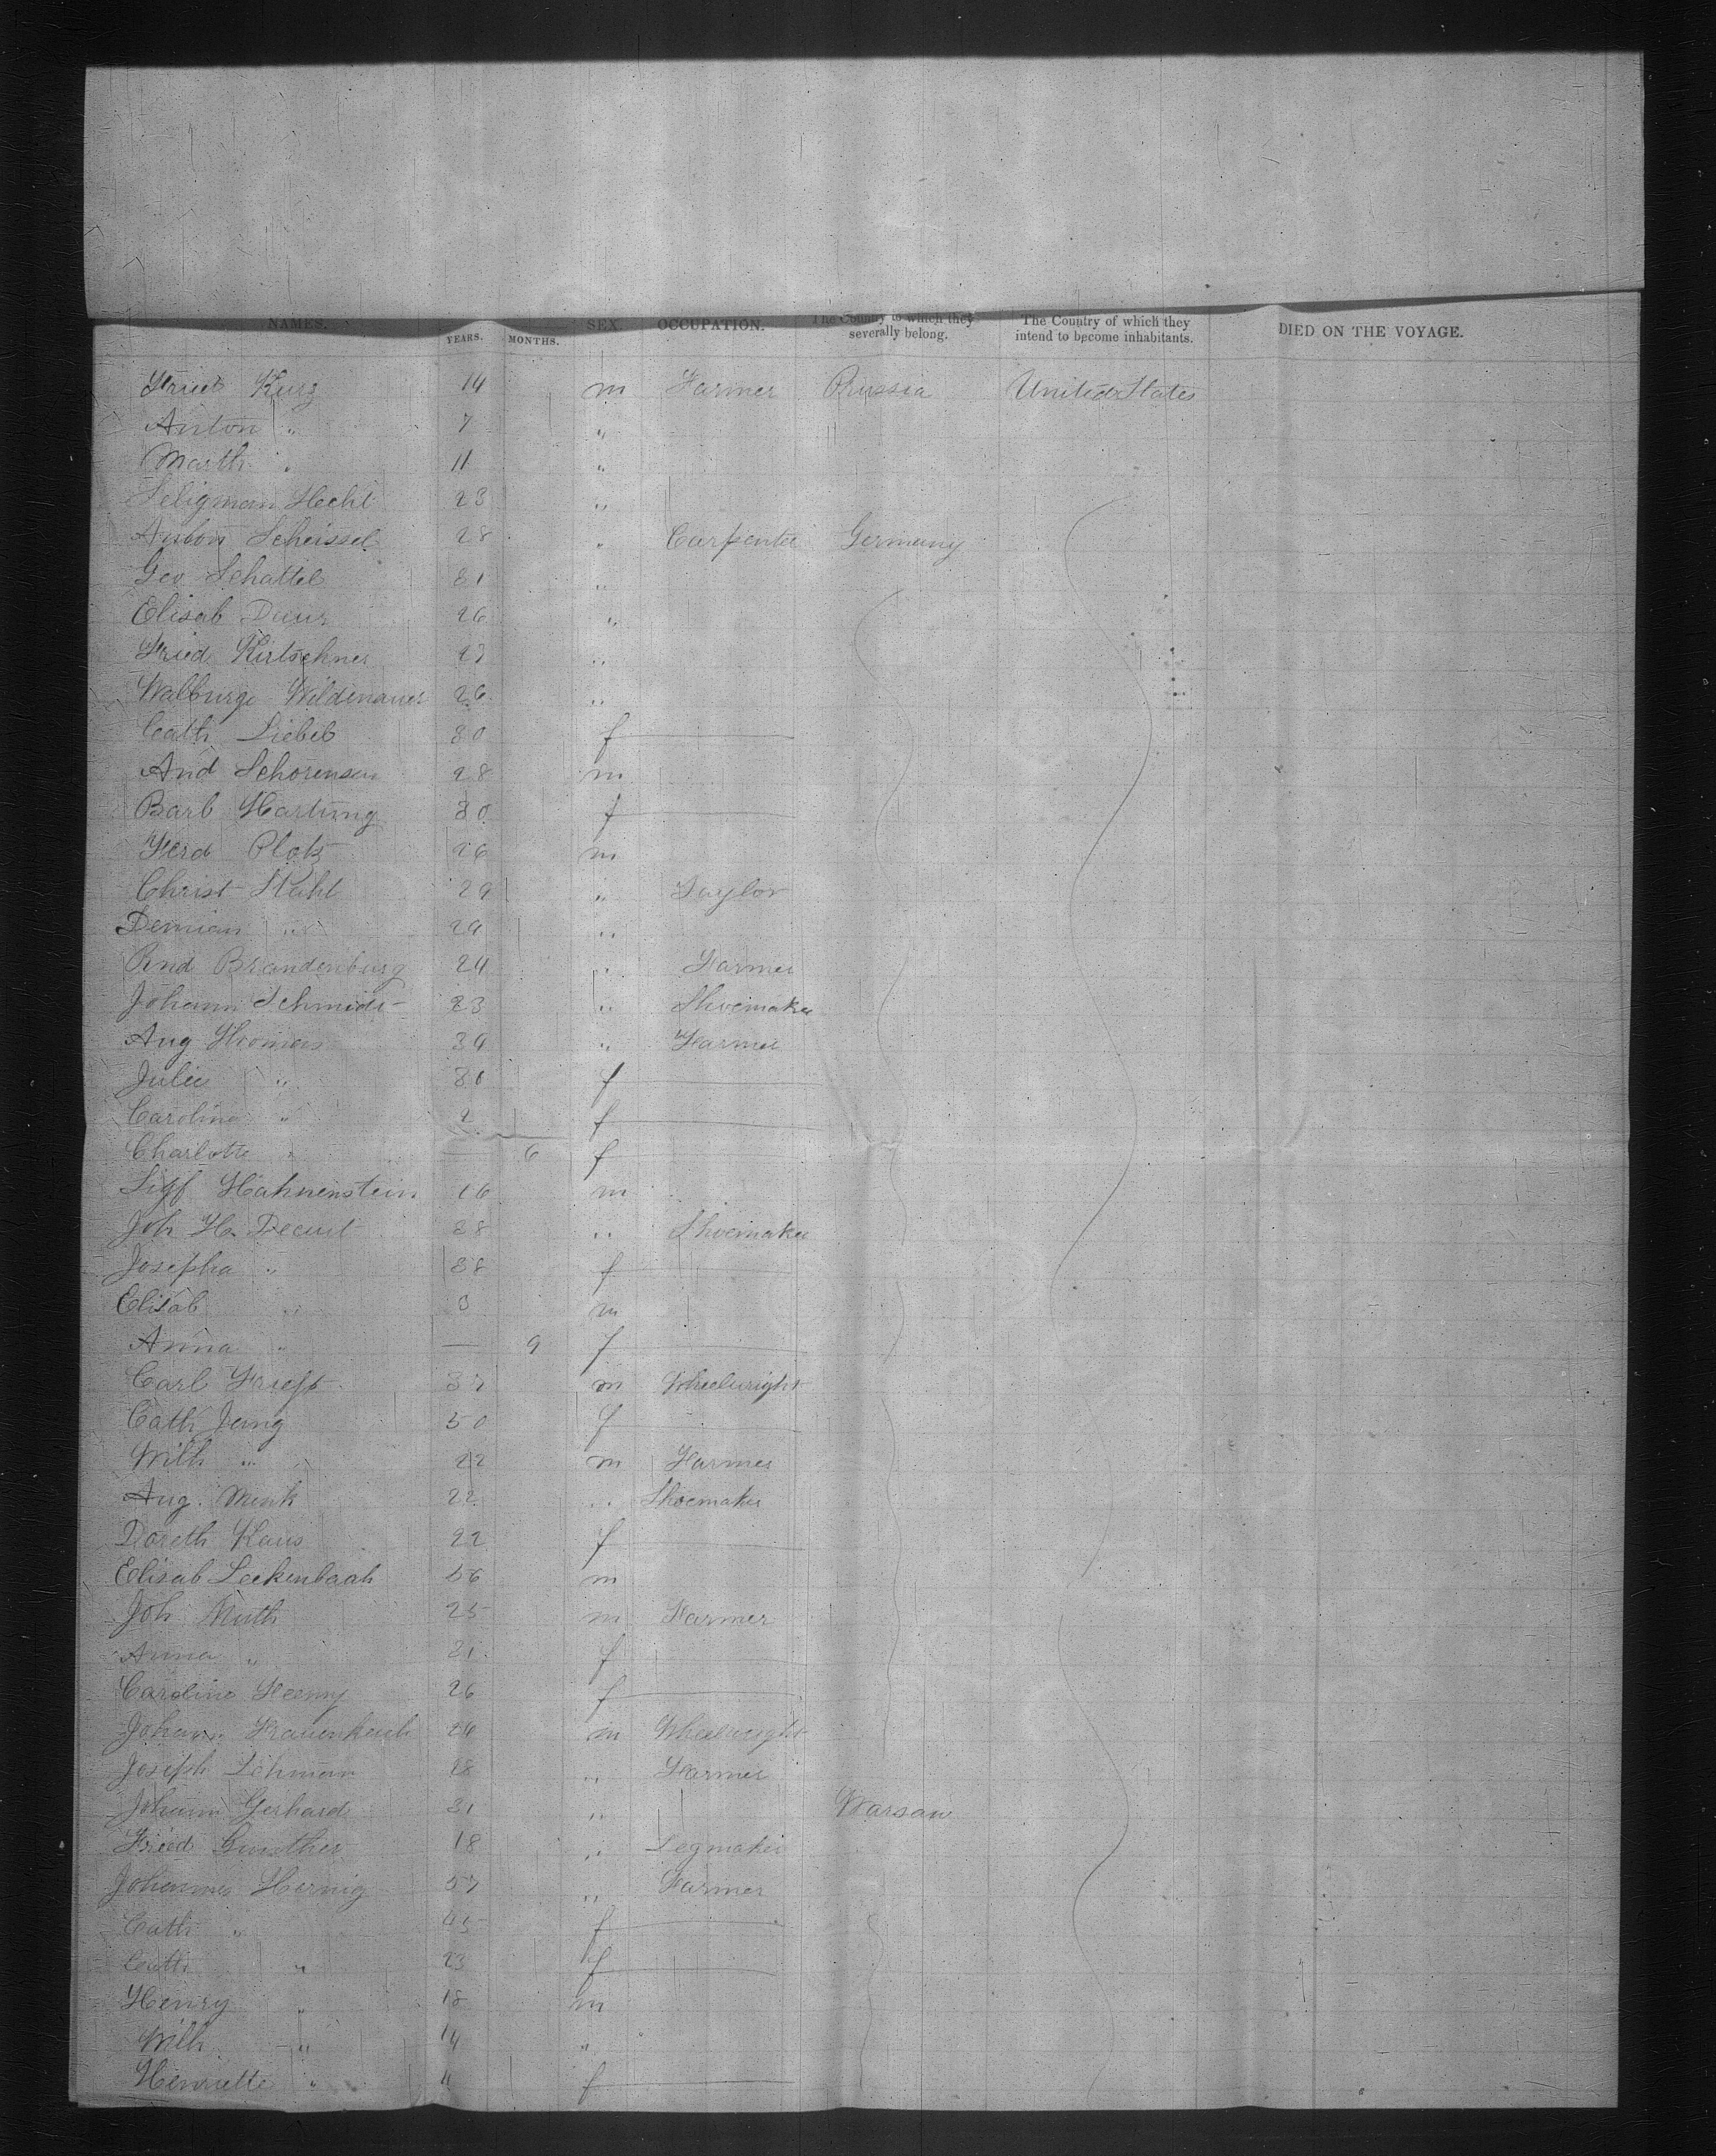 NAMES. YEARS. MONTHS. SEX. OCCUPATION. The Country to which they severally belong. The Country of which they intend to become inhabitants. DIED ON THE VOYAGE.
Fried Kurz 14 m Farmer Prussia United States
Anton " 7 "
Marth " 11 "
Seligman Hecht 23 "
Anton Scheissel 28 " Carpenter Germany
Geo Schattel 31 "
Elisab 26 "
Fried Kirtschner "
Walburga Wildenauer 26 "
Cath Liebel 30 f
And Schorensen 28 m
Barb Hartung 30 f
Ferd Plotz 26 m
Christ Stahl 29 " Taylor
Demian " "
And Brandenburg 24 " Farmer
Johann Schmidt 23 " Shoemaker
Aug Thomas 34 " Farmer
Julie " 30 f
Caroline " 2 f
Charlotte " — 6 f
Hahnenstein 16 m
Joh H. 38 " Shoemaker
Josepha " 38 f
Elisab " 3 m
Anna " — 9 f
Carl 37 m Wheelwright
Cath Jung 50 f
Wilh " 22 m Farmer
Aug. Menk 22 " Shoemaker
Doreth Kaus 22 f
Elisab Leckenbaah 56 m
Joh Muth 25 m Farmer
Anna " 21 f
Caroline Henry 26 f
Johann 26 m Wheelwright
Joseph Lehman 18 " Farmer
Johann Gerhard 31 " Warsaw
Fried Gunther 18 " Legmaker
Johannes Hernig 57 " Farmer
Cath " 45 f
Cath " 23 f
Henry " 18 m
Wilh " 14 "
Henriette " 4 f